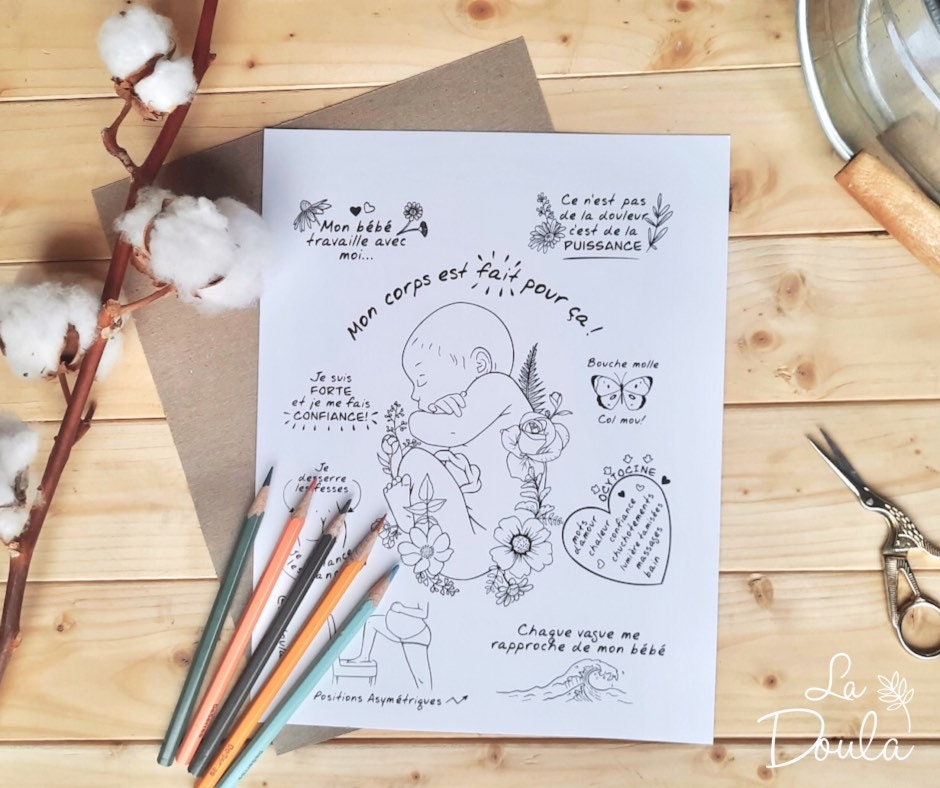 Mon bébé
travaille avec
moi...
Ce n'est pas
de la douleur
c'est de la
PUISSANCE
Mon corps est fait pour ça!
Je suis
FORTE
et je me fais
CONFIANCE!
Bouche molle
Col mou!
Je
desserre
les fesses
je
les
OCYTOCINE
mots
d'amour
chaleur
confiance
chuchotements
lumière tamisées
massages
bain
Chaque vague me
rapproche de mon bébé
Positions Asymétriques
La
Doula